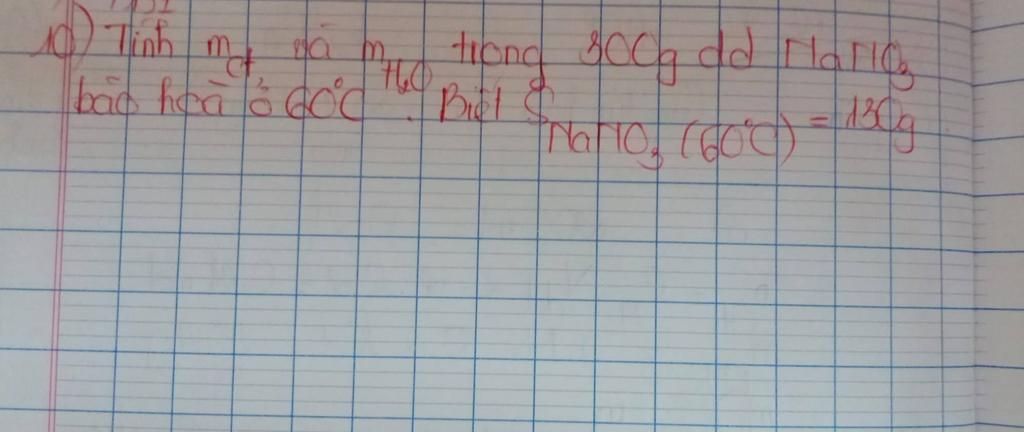 10) Tính mct và mH2O trong 300g dd NaNO3
bão hoà ở 60°C. Biết SNaNO3 (60°C) = 130g